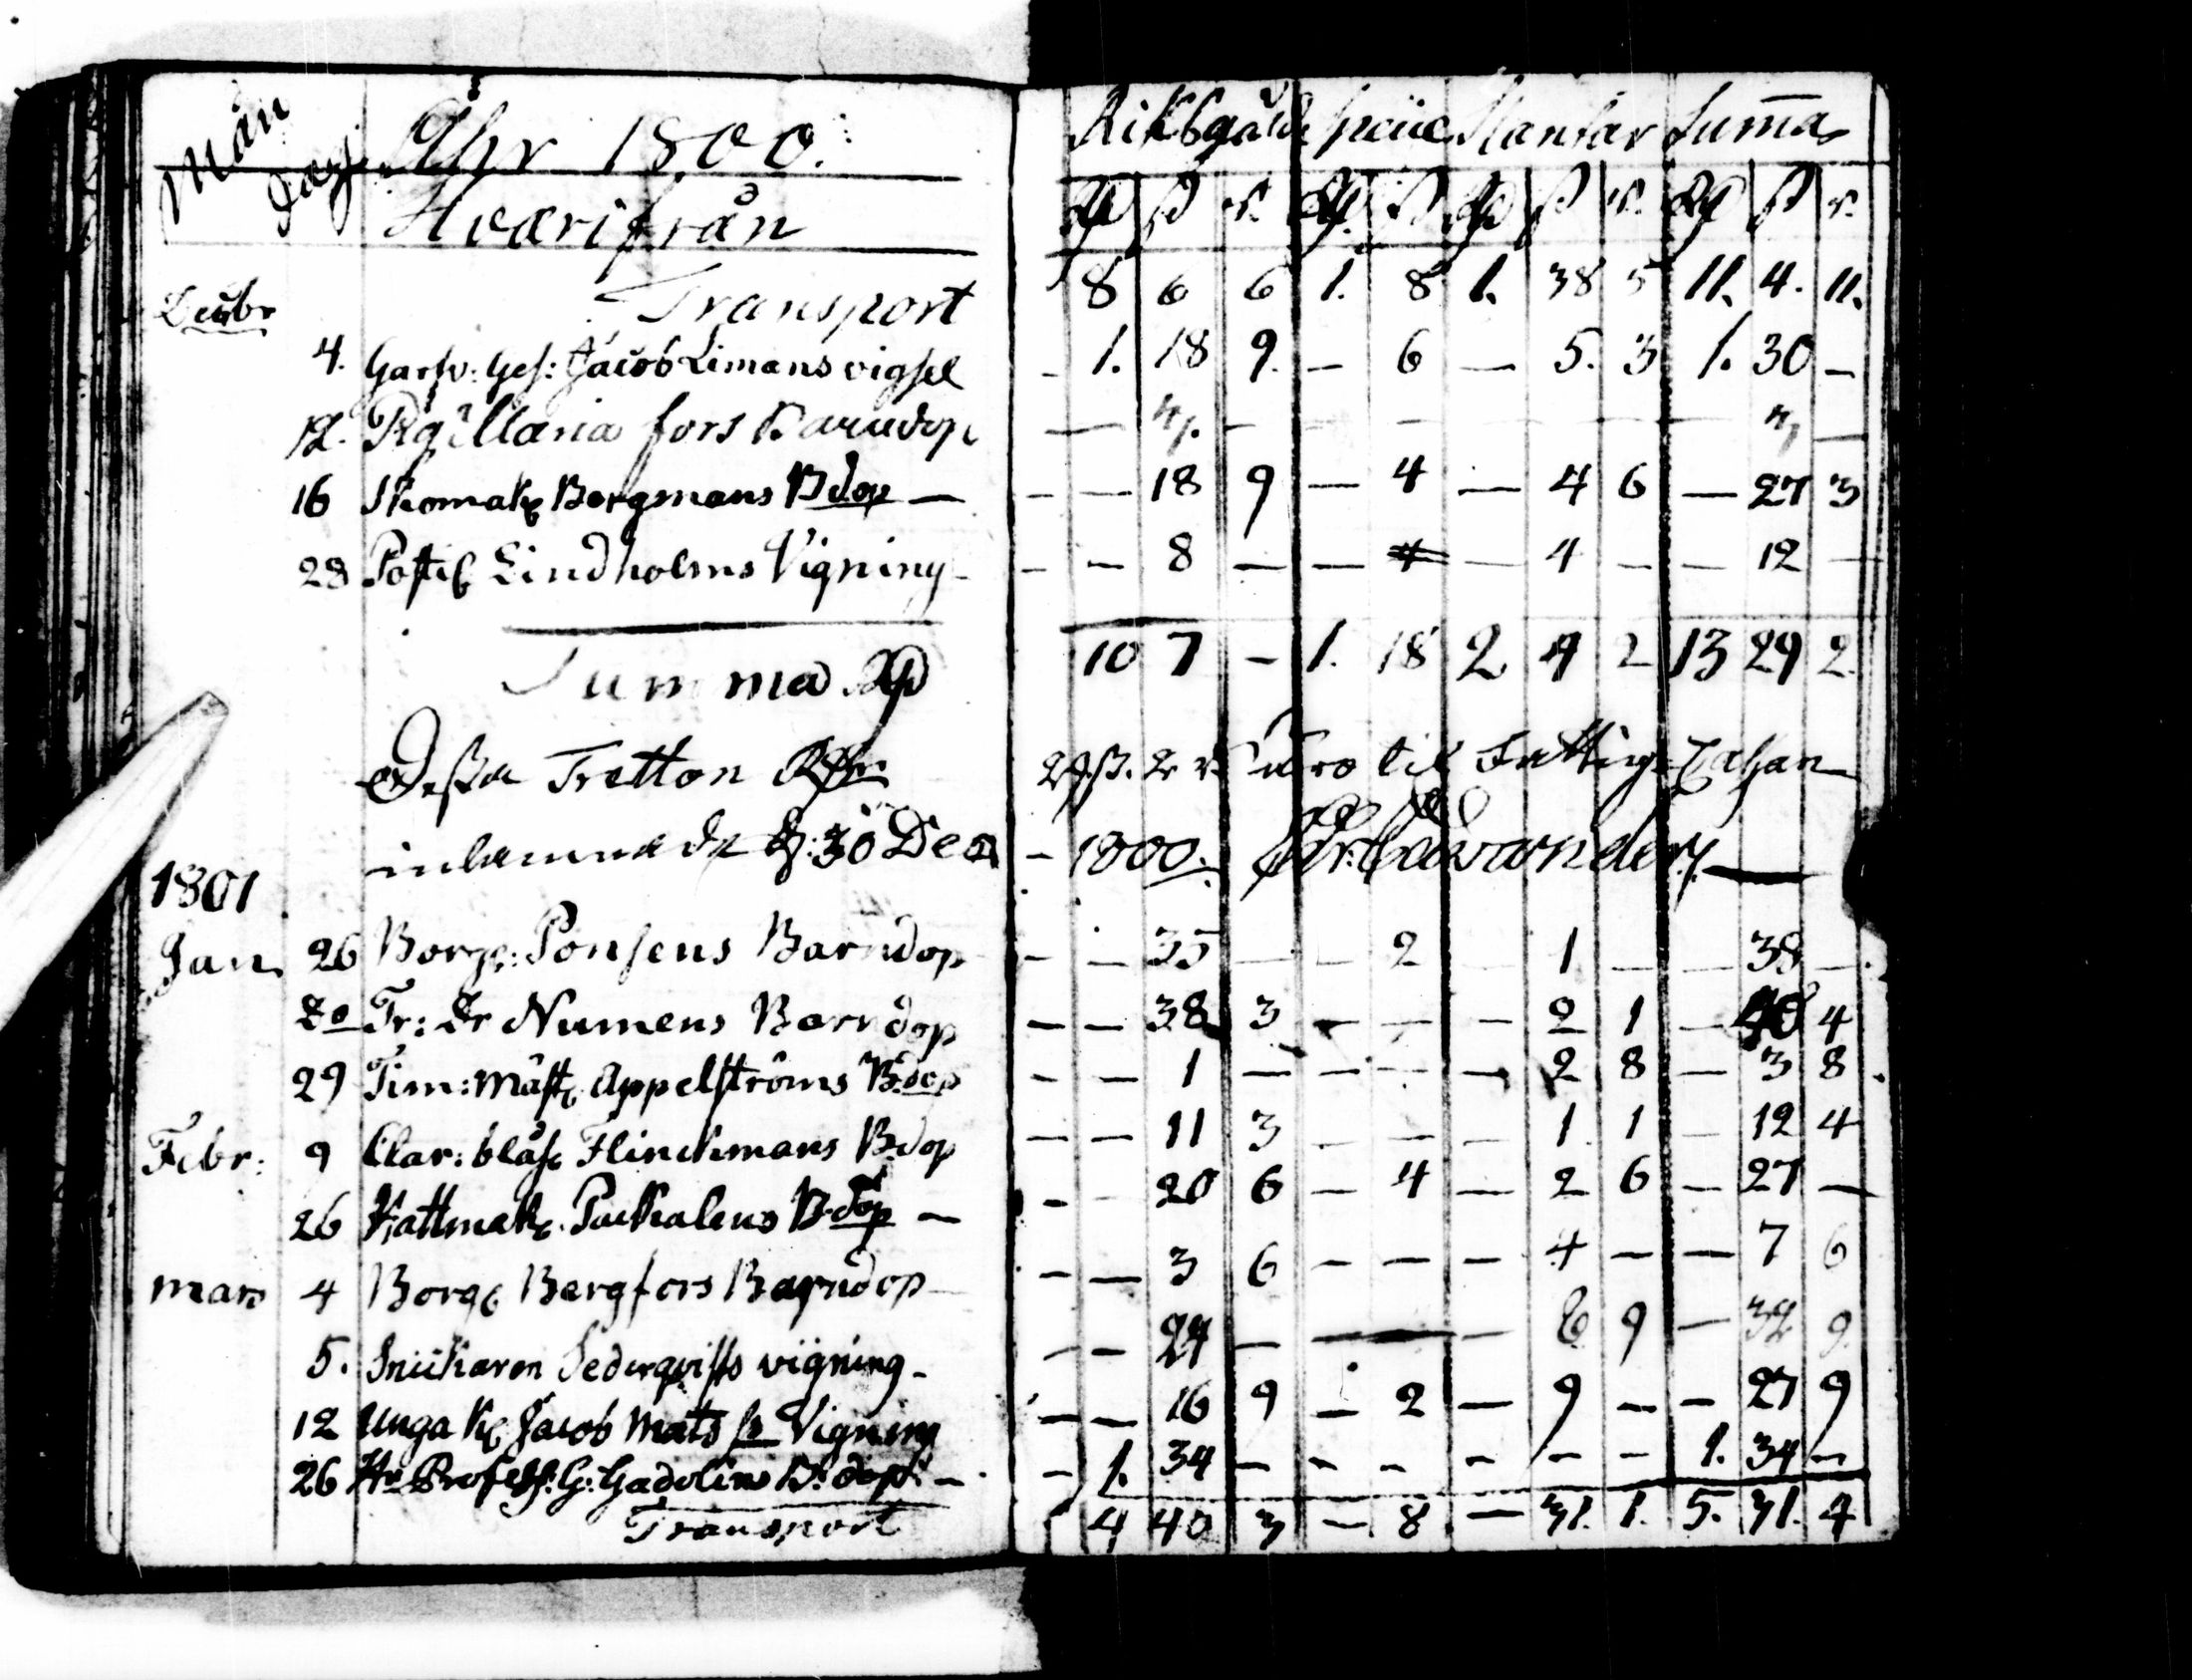 Mån Dag. Åhr 1800. Riksgälds Specie Slantar Summa
Hvarifrån Rd ß r. Rd. ß Rd ß r. Rd ß r.
Decbr Transport 8 6 6 1. 8 1. 38 5 11. 4. 11.
4. Garfv: Ges: Jacob Limans vigsel - 1. 18 9. - 6 - 5. 3 1. 30 -
12. Pig Maria fors Barndop — 4. - - - - - - 4 —
16 Skomak Bergmans Bdop — - — 18 9 — 4 — 4 6 — 27 3
28 Postil Lindholms Vigning - - - 8 — — 4 — 4 - — 12 —
Summa Rd 10 7 - 1. 18 2 4 2 13 29 2.
Dessa Tretton Rdr 29 ß. 2 r. äro til Fattigcassan
inlemnade d: 30 Dec - 1800.
1801
Jan. 26 Borg: Ponsens Barndop - - 35 — - 2 - 1 — - 38 -
Do Tr: Dr Numens Barndop — — 38 3 - - - 2 1 — 40 4
29 Tim: mäst Appelströms B:dop - — 1 — - - - 2 8 — 3 8
Febr: 9 Clar: blås Flinckmans B:dop — — 11 3 - - - 1. 1 — 12 4
26 Hattmak. Packalens B-dop — - - 20 6 — 4 — 2 6 — 27 —
Mars 4 Borg Bergfors Barndop — - — 3 6 - - - 4 — — 7 6
5. Snickaren Sederqvists vigning - - — 24 — — — 8 9 — 32 9
12 unga K Jacob Mats sr Vigning — — 16 9 — 2 — 9 — - 27 9
26 Hr Profess: G: Gadolins B: dop - - 1. 34 - - - - - - 1. 34 -
Transport 4 40 3 — 8 — 31. 1. 5. 31. 4